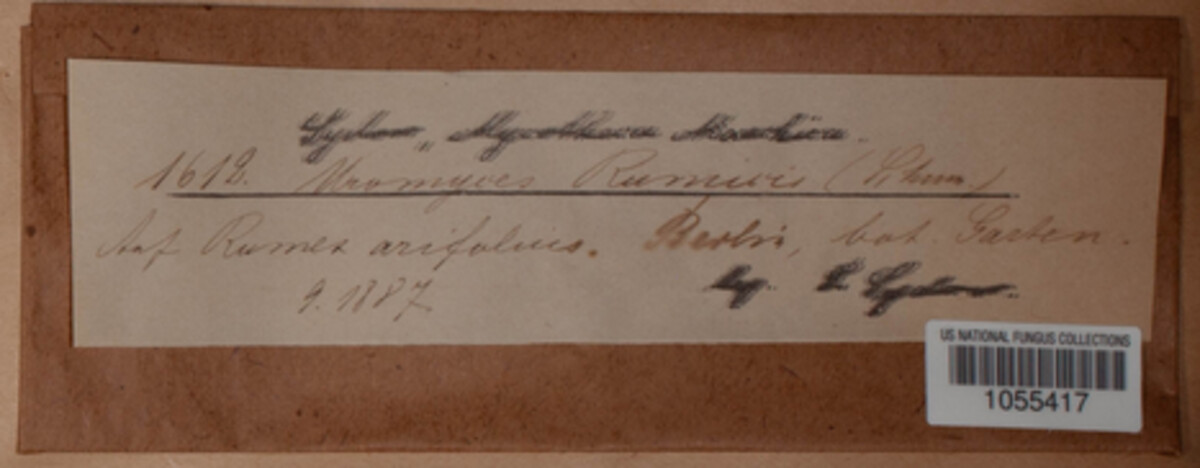 Sydow, Mycotheca Marchica.
1612. Uromyces Rumicis (Schum.)
Auf Rumex arifolius. Berlin, bot. Garten.
9. 1887. leg. P. Sydow.
US NATIONAL FUNGUS COLLECTIONS
1055417